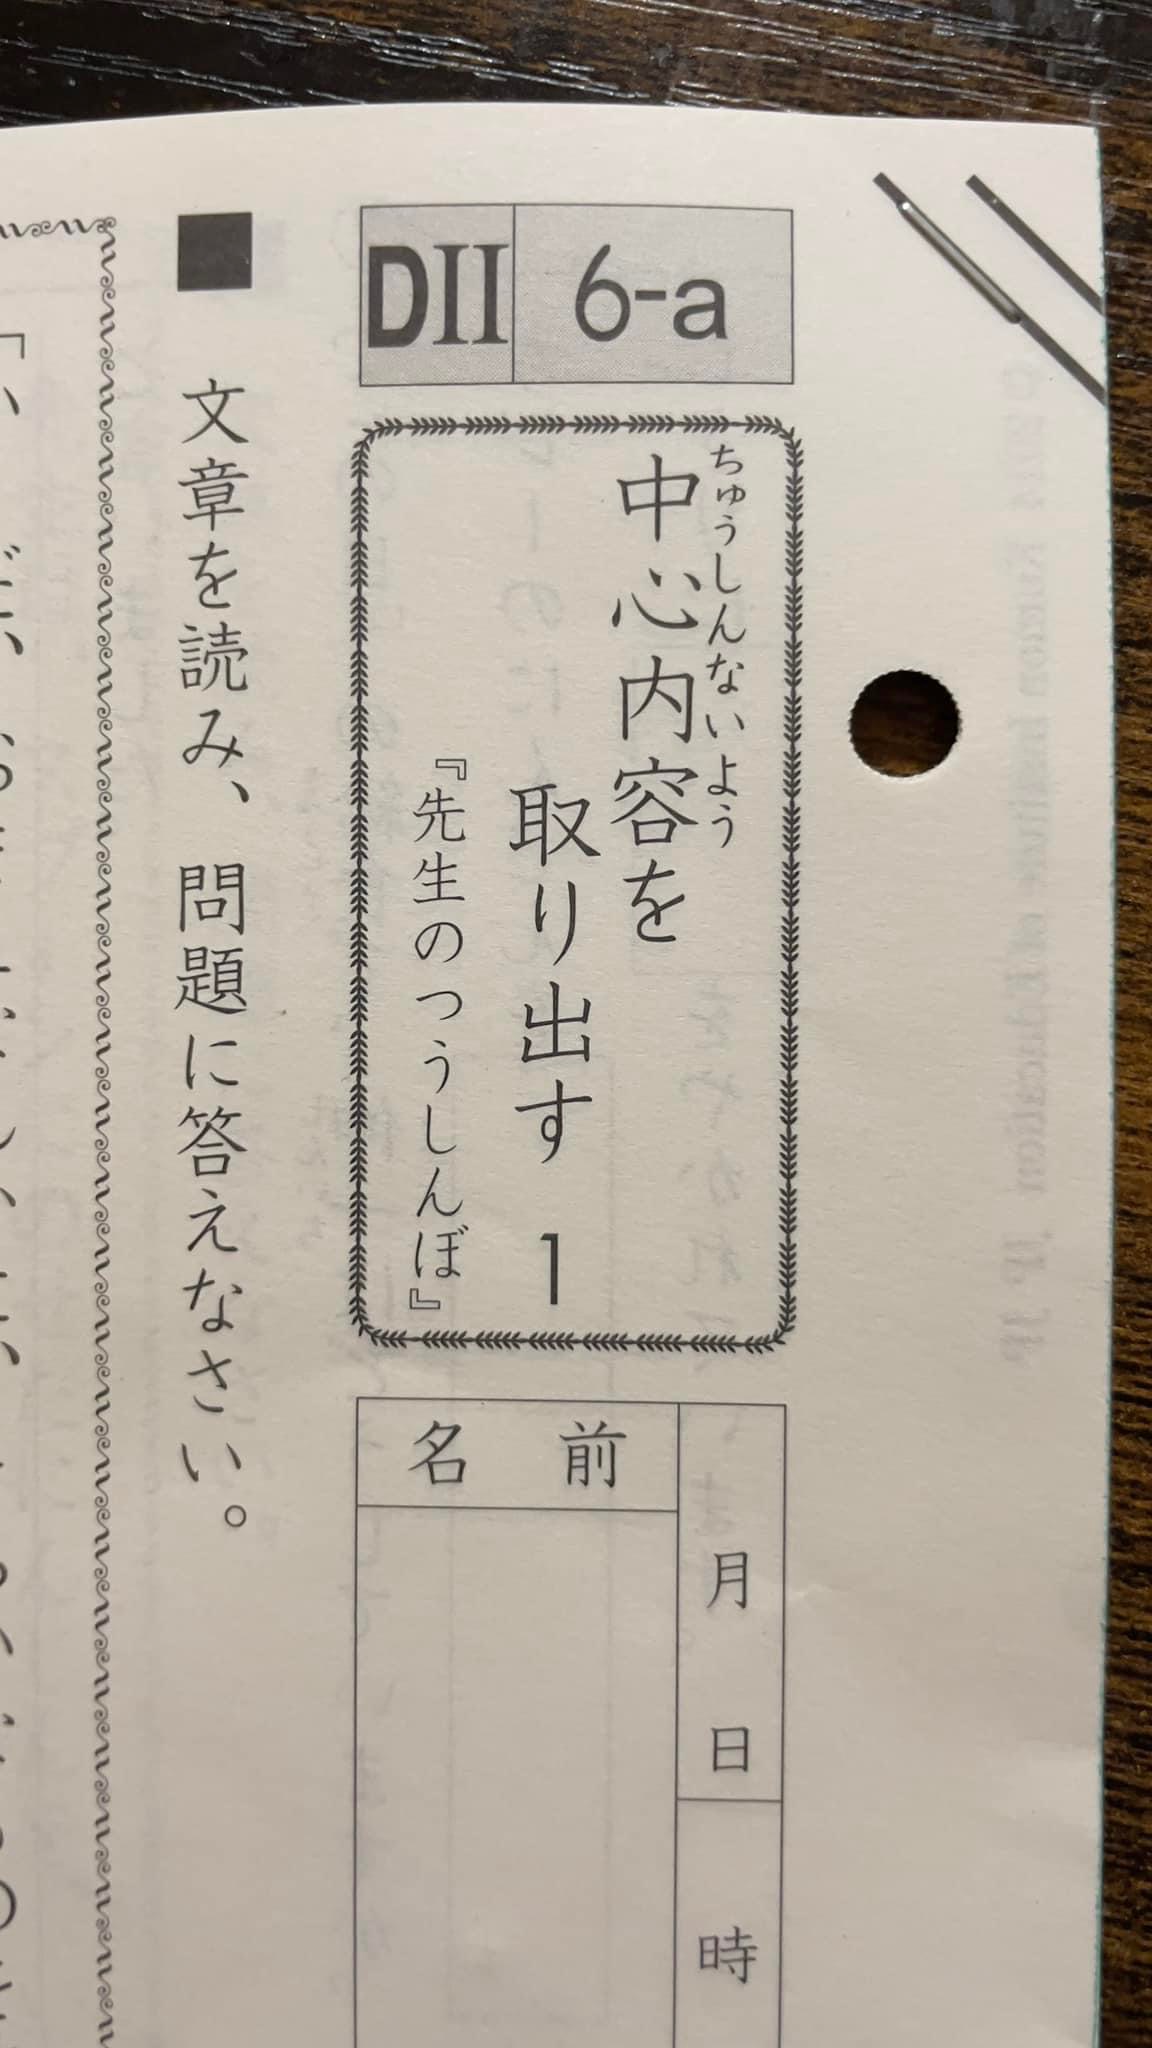 DII 6-a
中心内容を
ちゅうしんないよう
取り出す 1
『先生のつうしんぼ』
月 日
時
名前
■ 文章を読み、問題に答えなさい。